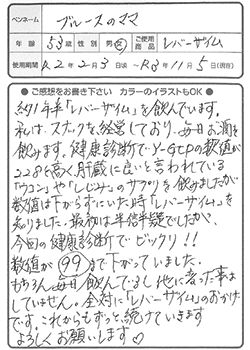 ペンネーム ブルースのママ
年齢 53歳 性別 男・女 ご使用商品 レバーザイム
使用期間 R2年2月3日頃 ~ R3年11月5日(現在)
●ご感想をお書き下さい カラーのイラストもOK●
約1年半「レバーザイム」を飲んでいます。
私は、スナックを経営しており、毎日お酒を
飲みます。健康診断でγ-GTPの数値が
228と高く肝蔵に良いと言われている
「ウコン」や「しじみ」のサプリを飲みましたが
数値は下がらずにいた時「レバーザイム」を
知りました。最初は半信半疑でしたが、
今回の健康診断でビックリ!!
数値が99まで下がっていました。
もちろん毎日飲んでるし他に変った事は
していません。全対に「レバーザイム」のおかげ
です。これからもずっと続けていきます
よろしくお願いします♡